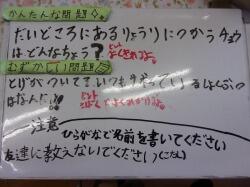 かんたんな問題
だいどころにあるりょうりにつかうチョウ
はどんなちょう？ ヒント
むずかしい問題
とげがついていていつもおこっているしょくぶつ
はなんだ!! ヒント
注意
ひらがなで名前を書いてください
友達に教えないでください